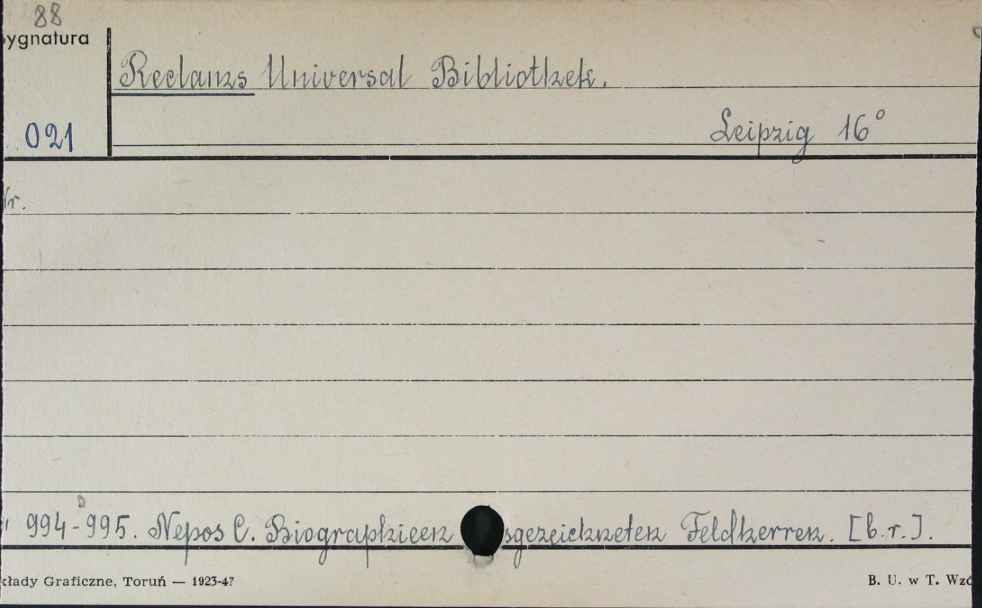 88
ygnatura
Reclams Universal Bibliothek.
021
Leipzig 16°
Nr.
" 994-995. Nepos C. Biographieen sgezeichneten Feldherren. [b.r.].
kłady Graficzne, Toruń — 1923-47
B. U. w T. Wzó